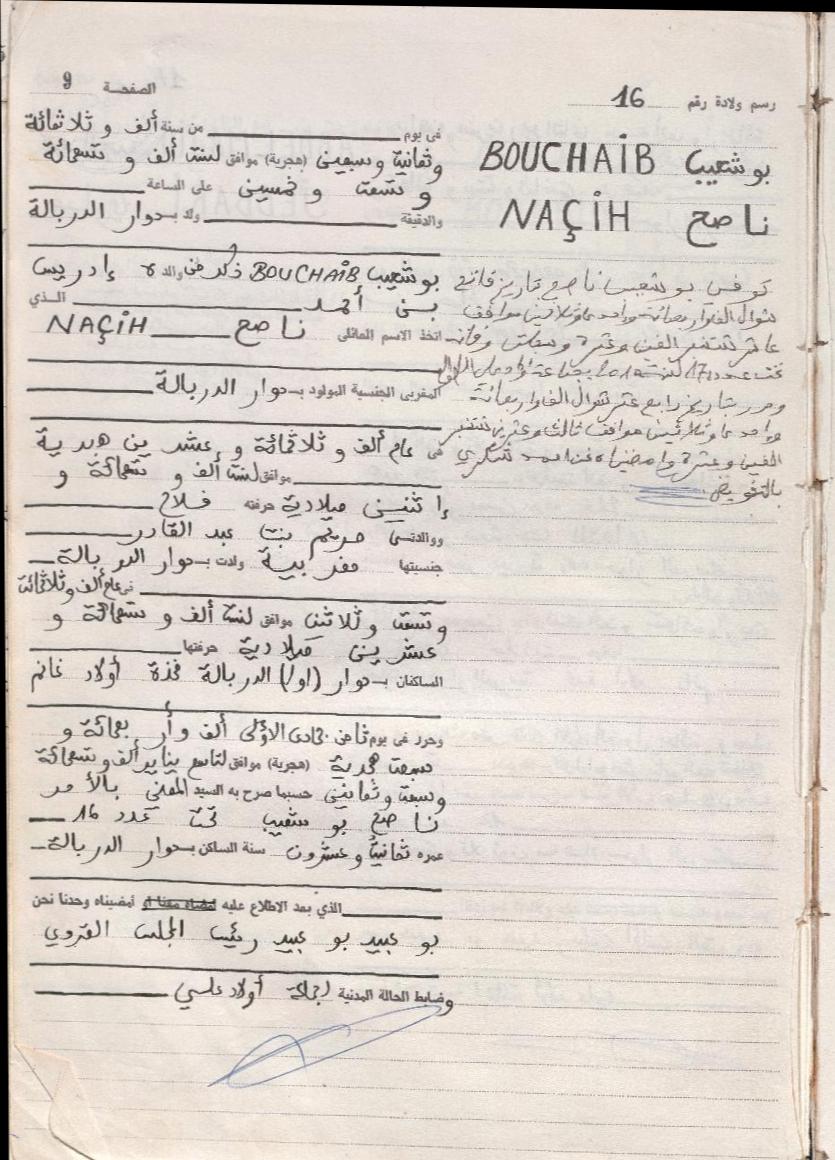 الصفحة 9
رسم ولادة رقم 16
بوشعيب BOUCHAIB
ناصح NAÇIH
توفي بوشعيب ناصح بتاريخ فاتح
شوال الف واربعمائة وواحد وثلاثين موافق
عاشر شتنبر الفين وعشرة
تحت عدد 17 لسنة
وحرر بتاريخ رابع عشر شوال الف واربعمائة
وواحد وثلاثين موافق ثالث وعشرين شتنبر
الفين وعشرة وامضيناه نحن
بالتفويض
في يوم من سنة ألف و ثلاثمائة
وثمانية وسبعين (هجرية) موافق لسنة ألف و تسعمائة
و تسعة و خمسين على الساعة
والدقيقة ولد بـ دوار الدربالة
بوشعيب BOUCHAIB ذكر والده إدريس
بن أحمد الذي
اتخذ الاسم العائلي ناصح NAÇIH
المغربي الجنسية المولود بـ دوار الدربالة
في عام ألف و ثلاثمائة و عشرين هجرية
موافق لسنة ألف و تسعمائة و
إثنين ميلادية حرفته فلاح
ووالدته مريم بنت عبد القادر
جنسيتها مغربية ولدت بـ دوار الدربالة
في عام ألف وثلاثمائة
وتسعة و ثلاثين موافق لسنة ألف و تسعمائة و
عشرين ميلادية حرفتها
الساكنان بـ دوار (اولا) الدربالة فخذة أولاد غانم
وحرر في يوم ثامن جمادى الاولى ألف وأربعمائة و
سبعة هجرية (هجرية) موافق لتاسع يناير ألف وتسعمائة
وسبعة وثمانين حسبما صرح به السيد المعني بالأمر
ناصح بوشعيب تحت عدد 16
عمره ثمانية وعشرون سنة الساكن بـ دوار الدربالة
الذي بعد الاطلاع عليه امضاه معنا او أمضيناه وحدنا نحن
بوعبيد بوعبيد رئيس المجلس القروي
وضابط الحالة المدنية لجماعة أولاد عيسي